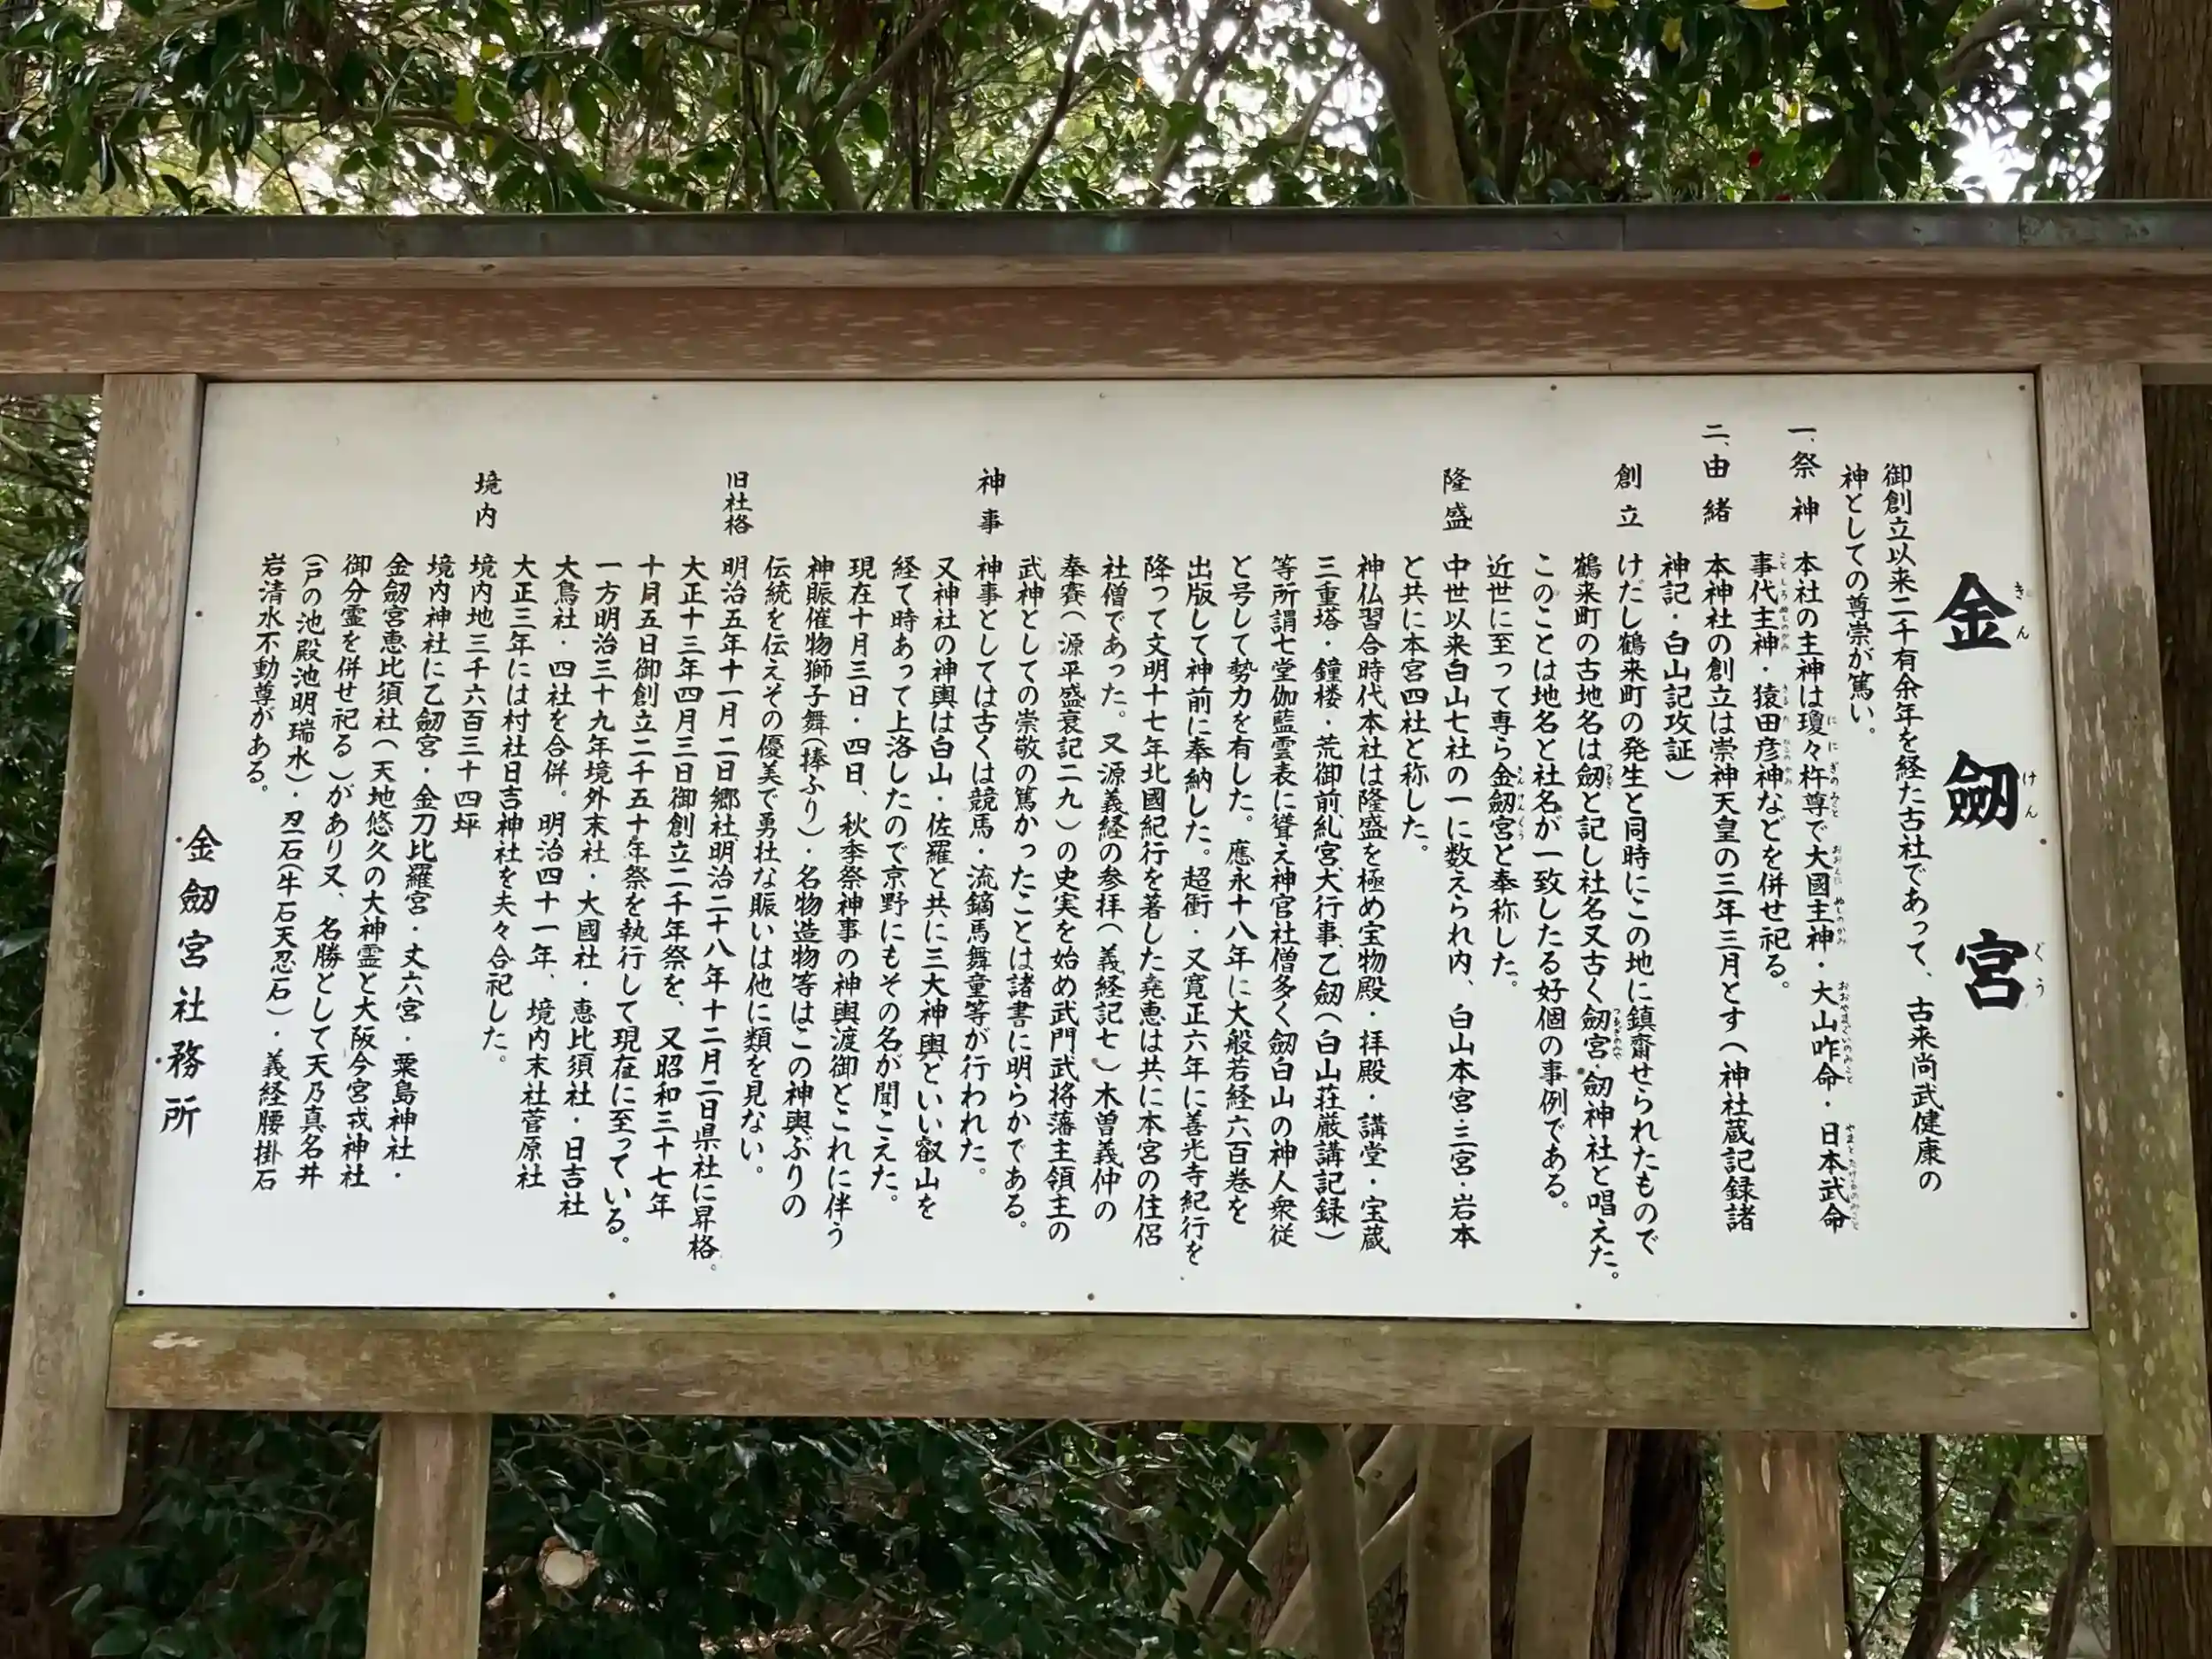 金劔宮
御創立以来二千有余年を経た古社であって、古来尚武健康の
神としての尊崇が篤い。
一、祭神 本社の主神は瓊々杵尊で大國主神・大山咋命・日本武命
事代主神・猿田彦神などを併せ祀る。
二、由緒 本神社の創立は崇神天皇の三年三月とす(神社蔵記録諸
神記・白山記攻証)
創立 けだし鶴来町の発生と同時にこの地に鎮齋せられたもので
鶴来町の古地名は劔と記し社名又古く劔宮・劔神社と唱えた。
このことは地名と社名が一致したる好個の事例である。
近世に至って専ら金劔宮と奉称した。
隆盛 中世以来白山七社の一に数えられ内、白山本宮・三宮・岩本
と共に本宮四社と称した。
神仏習合時代本社は隆盛を極め宝物殿・拝殿・講堂・宝蔵
三重塔・鐘楼・荒御前糺宮大行事、乙劔(白山荘厳講記録)
等所謂七堂伽藍雲表に聳え神官社僧多く劔白山の神人衆従
と号して勢力を有した。應永十八年に大般若経六百巻を
出版して神前に奉納した。超衝・又寛正六年に善光寺紀行を
降って文明十七年北國紀行を著した堯恵は共に本宮の住侶
社僧であった。又源義経の参拝(義経記七)木曽義仲の
奉賽(源平盛衰記二九)の史実を始め武門武将藩主領主の
武神としての崇敬の篤かったことは諸書に明らかである。
神事 神事としては古くは競馬・流鏑馬舞童等が行われた。
又神社の神輿は白山・佐羅と共に三大神輿といい叡山を
経て時あって上洛したので京野にもその名が聞こえた。
現在十月三日・四日、秋季祭神事の神輿渡御とこれに伴う
神賑催物獅子舞(捧ふり)・名物造物等はこの神輿ぶりの
伝統を伝えその優美で勇壮な賑いは他に類を見ない。
旧社格 明治五年十一月二日郷社明治二十八年十二月二日県社に昇格。
大正十三年四月三日御創立二千年祭を、又昭和三十七年
十月五日御創立二千五十年祭を執行して現在に至っている。
一方明治三十九年境外末社・大國社・恵比須社・日吉社
大鳥社・四社を合併。明治四十一年、境内末社菅原社
大正三年には村社日吉神社を夫々合祀した。
境内 境内地三千六百三十四坪
境内神社に乙劔宮・金刀比羅宮・丈六宮・粟島神社・
金劔宮恵比須社(天地悠久の大神霊と大阪今宮戎神社
御分霊を併せ祀る)があり又、名勝として天乃真名井
(戸の池殿池明瑞水)・忍石(牛石天忍石)・義経腰掛石
岩清水不動尊がある。
金劔宮社務所
きんけんぐう
ににぎのみこと
おおくにぬしのかみ
おおやまぐいのみこと
やまとたけるのみこと
ことしろぬしのかみ
さるたひこのかみ
つるぎ
つるぎのみや
きんけんぐう